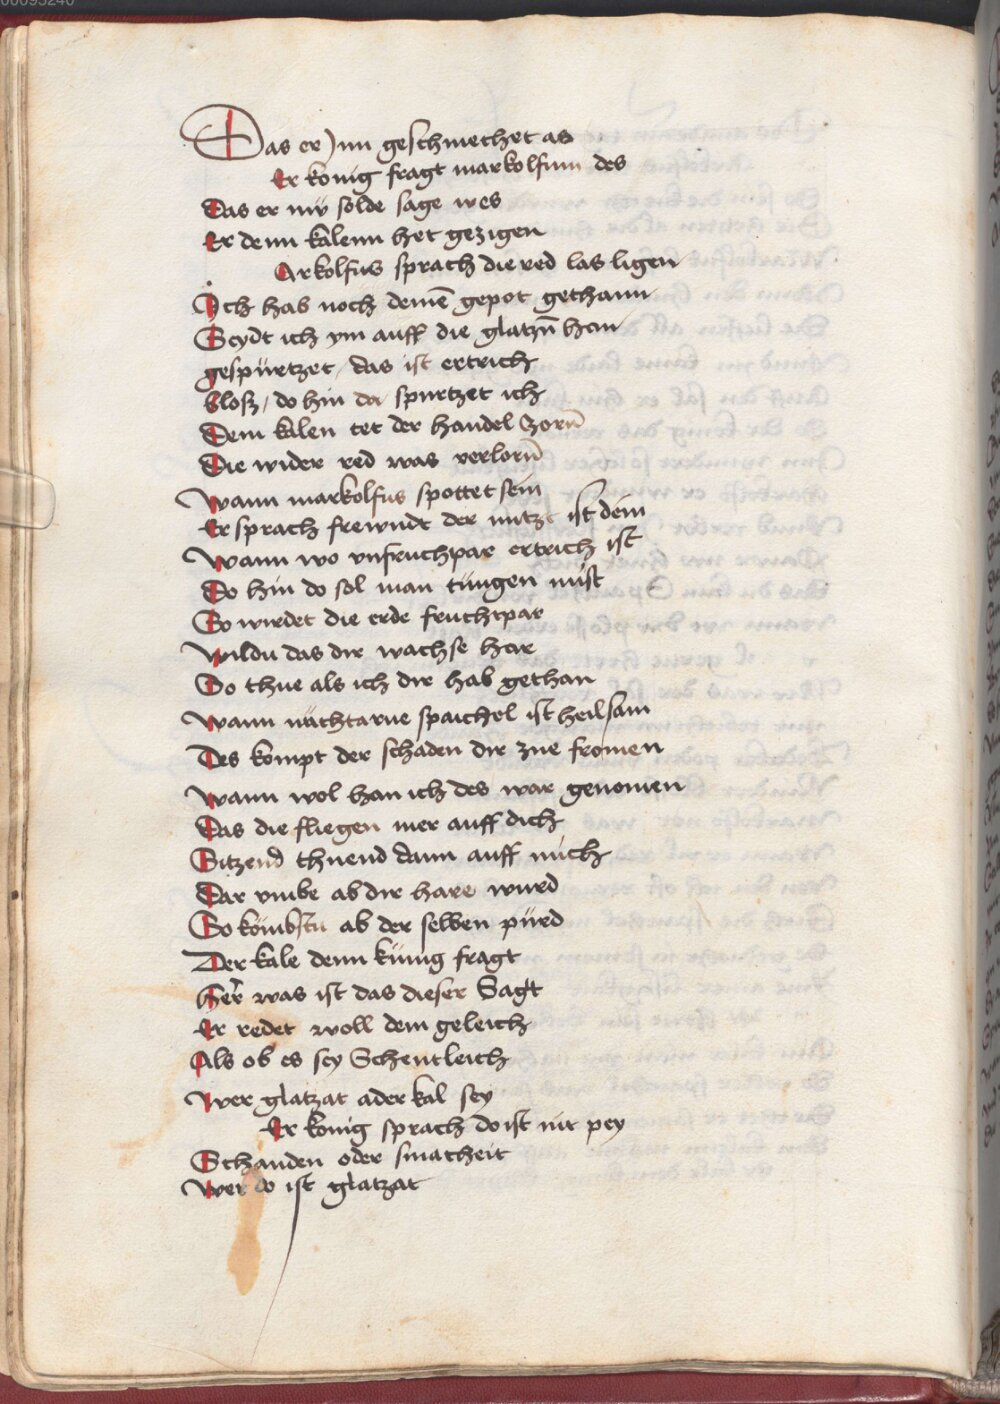 Das er Jnn geschmechet as
Er konig fragt markolfum des
Das er mir solde sage wes
Er denn kalenn het gezigen
Arkolfus sprach die red las ligen
Ich hab noch deinē gepot gethann
Seydt ich ym auff die glatzn̄ han
gespürtzet / das ist ertrich
blosz / do hin da spurtzet ich
Dem kalen tet der handel Zorn̄
Die wider red was verlorn̄
Wann markolfus spottet sein
Er sprach frewndt der nutz ist dein
Wann wo vnfruchpar ertrich ist
Do hin do sol man tüngen mist
So wirdet die erde fruchtpar
Wildu das dir wachse har
So thue als ich dir hab gethan
Wann nüchtarne spaichel ist heilsam
Des kompt der schaden dir zue fromen
Wann wol han ich des war genomen
Das die fliegen mer auff dich
Sitzend thuend dann auff mich
Dar vmbe ab dir hare wurd
So kombstu ab der selben pürd
Der kale denn künig fragt
her̄ was ist das dieser Sagt
Er redet woll dem geleich
Als ob es sey Schentleich
Wer glatzat ader kal sey
Er konig sprach do ist nit pey
Schanden oder smacheit
Wer do ist glatzat